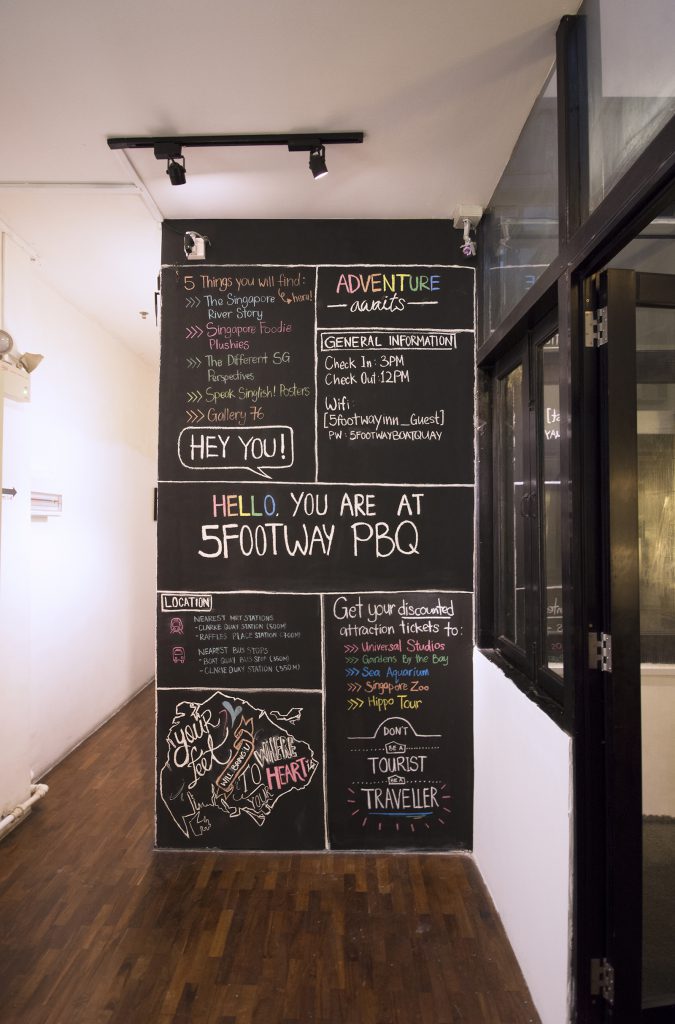 5 Things you will find:
here!
>>> The Singapore
River Story
>>> Singapore Foodie
Plushies
>>> The Different SG
Perspectives
>>> Speak Singlish! Posters
>>> Gallery 76
HEY YOU!
ADVENTURE
awaits
GENERAL INFORMATION
Check In: 3PM
Check Out: 12PM
Wifi:
[5footwayinn_Guest]
PW: 5FOOTWAYBOATQUAY
HELLO, YOU ARE AT
5FOOTWAY PBQ
LOCATION
NEAREST MRT STATIONS
- CLARKE QUAY STATION (500M)
- RAFFLES PLACE STATION (700M)
NEAREST BUS STOPS
- BOAT QUAY BUS STOP (350M)
- CLARKE QUAY STATION (550M)
your
feet
WILL BRING U
TO WHERE
YOUR
HEART IS
Get your discounted
attraction tickets to:
>>> Universal Studios
>>> Gardens By the Bay
>>> Sea Aquarium
>>> Singapore Zoo
>>> Hippo Tour
DON'T
BE A
TOURIST
BE A
TRAVELLER